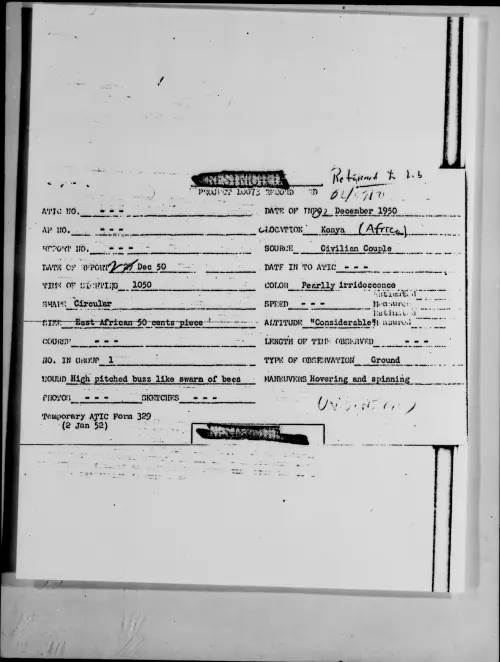 RESTRICTED
PROJECT 10073 RECORD
ATIC NO. - - -
DATE OF INFO 2 December 1950
AF NO. - - -
LOCATION Konya (Africa)
REPORT NO. - - -
SOURCE Civilian Couple
DATE OF REPORT Dec 50
DATE IN TO ATIC - - -
TIME OF SIGHTING 1050
COLOR Pearlly irridescence
SHAPE Circular
SPEED - - -
SIZE East African 50 cents piece
ALTITUDE "Considerable"
COURSE
LENGTH OF TIME OBSERVED - - -
NO. IN GROUP 1
TYPE OF OBSERVATION Ground
SOUND High pitched buzz like swarm of bees
MANEUVERS Hovering and spinning
PHOTOS - - - SKETCHES - - -
Temporary ATIC Form 329
(2 Jan 52)